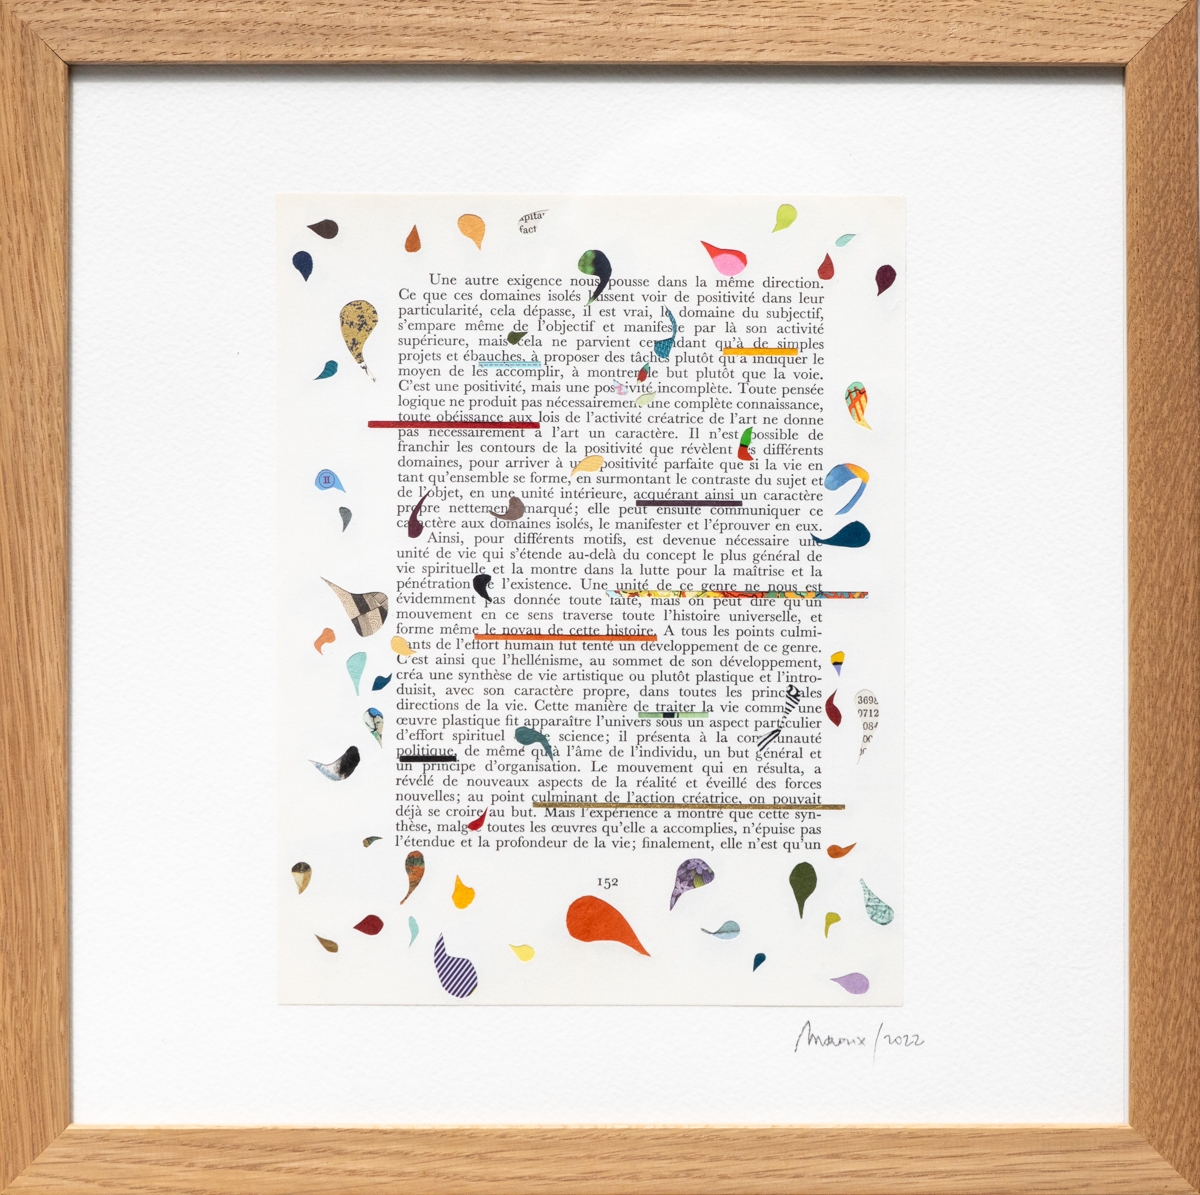 apita
fact
Une autre exigence nous pousse dans la même direction.
Ce que ces domaines isolés laissent voir de positivité dans leur
particularité, cela dépasse, il est vrai, le domaine du subjectif,
s'empare même de l'objectif et manifeste par là son activité
supérieure, mais cela ne parvient cependant qu'à de simples
projets et ébauches, à proposer des tâches plutôt qu'à indiquer le
moyen de les accomplir, à montrer le but plutôt que la voie.
C'est une positivité, mais une positivité incomplète. Toute pensée
logique ne produit pas nécessairement une complète connaissance,
toute obéissance aux lois de l'activité créatrice de l'art ne donne
pas nécessairement à l'art un caractère. Il n'est possible de
franchir les contours de la positivité que révèlent les différents
domaines, pour arriver à une positivité parfaite que si la vie en
tant qu'ensemble se forme, en surmontant le contraste du sujet et
de l'objet, en une unité intérieure, acquérant ainsi un caractère
propre nettement marqué; elle peut ensuite communiquer ce
caractère aux domaines isolés, le manifester et l'éprouver en eux.
Ainsi, pour différents motifs, est devenue nécessaire une
unité de vie qui s'étende au-delà du concept le plus général de
vie spirituelle et la montre dans la lutte pour la maîtrise et la
pénétration de l'existence. Une unité de ce genre ne nous est
évidemment pas donnée toute faite, mais on peut dire qu'un
mouvement en ce sens traverse toute l'histoire universelle, et
forme même le noyau de cette histoire. A tous les points culmi-
nants de l'effort humain fut tenté un développement de ce genre.
C'est ainsi que l'hellénisme, au sommet de son développement,
créa une synthèse de vie artistique ou plutôt plastique et l'intro-
duisit, avec son caractère propre, dans toutes les principales
directions de la vie. Cette manière de traiter la vie comme une
œuvre plastique fit apparaître l'univers sous un aspect particulier
d'effort spirituel de science; il présenta à la communauté
politique, de même qu'à l'âme de l'individu, un but général et
un principe d'organisation. Le mouvement qui en résulta, a
révélé de nouveaux aspects de la réalité et éveillé des forces
nouvelles; au point culminant de l'action créatrice, on pouvait
déjà se croire au but. Mais l'expérience a montré que cette syn-
thèse, malgré toutes les œuvres qu'elle a accomplies, n'épuise pas
l'étendue et la profondeur de la vie; finalement, elle n'est qu'un
152
3698
0712
/2022